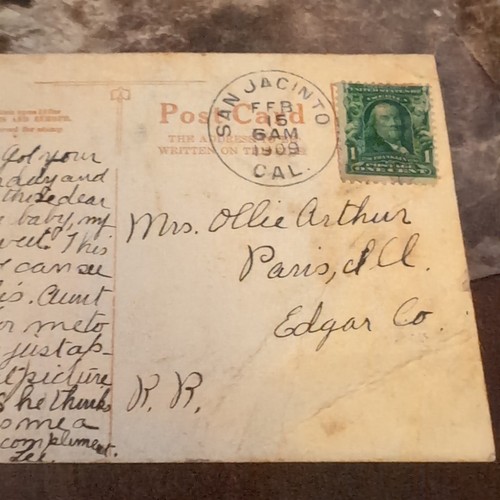 Post Card
THE ADDRESS
WRITTEN ON TH
SAN JACINTO
FEB
15
6AM
1909
CAL.
UNITED STATES
FRANKLIN
1 1
ONE CENT
Got your
ady and
these dear
baby, my
This
can see
Aunt
or me to
just ap-
picture
She thinks
me a
compliment.
Lee.
Mrs. Ollie Arthur
Paris, Ill.
Edgar Co.
R. R.